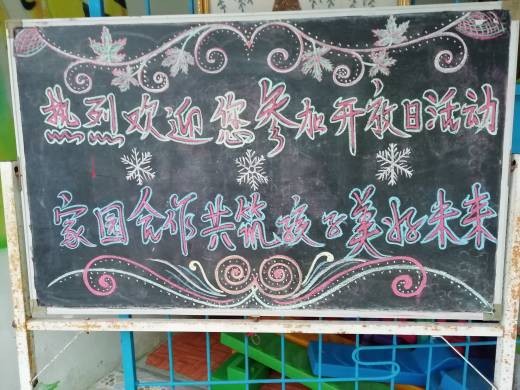 热烈欢迎您参加开放日活动
家园合作共筑孩子美好未来